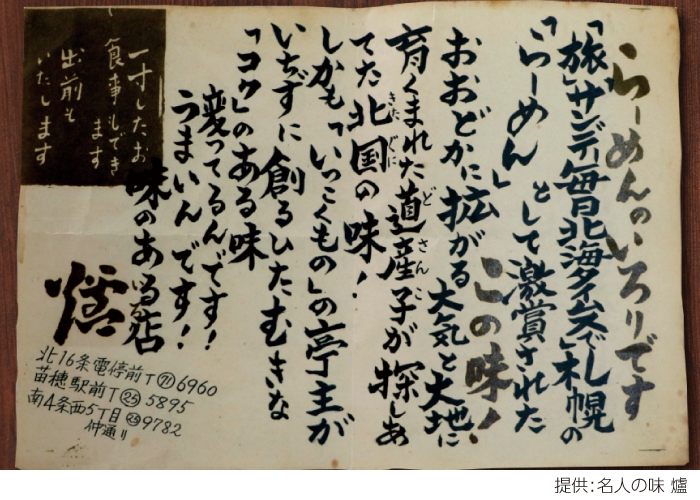 らーめんのいろりです
「旅」「サンデー毎日」「北海タイムス」でし 札幌の
「らーめん」として激賞された
この味!
おおどかに拡がる大気と大地に
育くまれた道産子が探しあ
てた北国の味!
しかも「いっこくもの」の亭主が
いちずに創るひたむきな
「コク」のある味
変ってるんです!
うまいんです!
味のある店
爐
北16条電停前 T(71)6960
苗穂駅前 T(25)5895
南4条西5丁目 (23)9782
仲通り
一寸したお
食事もでき
ます
出前も
いたします
提供:名人の味 爐